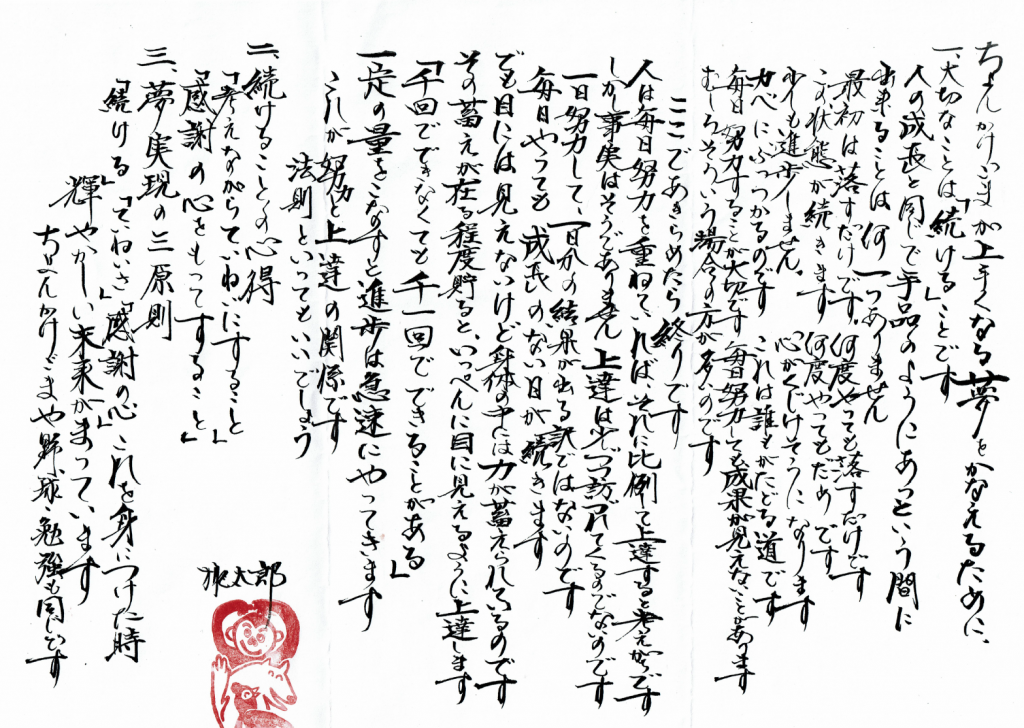 ちょんかけごまが上手くなる夢をかなえるために、
一、大切なことは「続ける」ことです
人の成長と同じで手品のようにあっという間に
出来ることは何一つありません
最初は落すだけです。何度やっても落すだけです
この状態が続きます 何度やってもだめです
少しも進歩しません。 心がくじけそうになります
カベにぶつかるのです これは誰もがたどる道です
毎日努力することが大切です 毎日努力しても成果が見えないことがあります
むしろそういう場合の方が多いのです
ここであきらめたら終りです
人は毎日努力を重ねていれば、それに比例して上達すると考えがちです
しかし事実はそうでありません 上達は少しづつ訪れてくるのでないのです
一日努力して、一日分の結果が出る訳ではないのです
毎日やっても 成長のない日が続きます
でも目には見えないけど身体の中には力が蓄えられているのです
その蓄えが在る程度貯ると、いっぺんに目に見えるように上達します
「千回でできなくても千一回でできることがある」
一定の量をこなすと進歩は急速にやってきます
これが努力と上達の関係です
法則といってもいいでしょう
二、続けることの心得
「考えながらていねいにすること」
「感謝の心をもってすること」
三、夢実現の三原則
「続ける」「ていねいさ」「感謝の心」これを身につけた時
輝やかしい未来がまっています
ちょんかけごまや野球、勉強も同じです